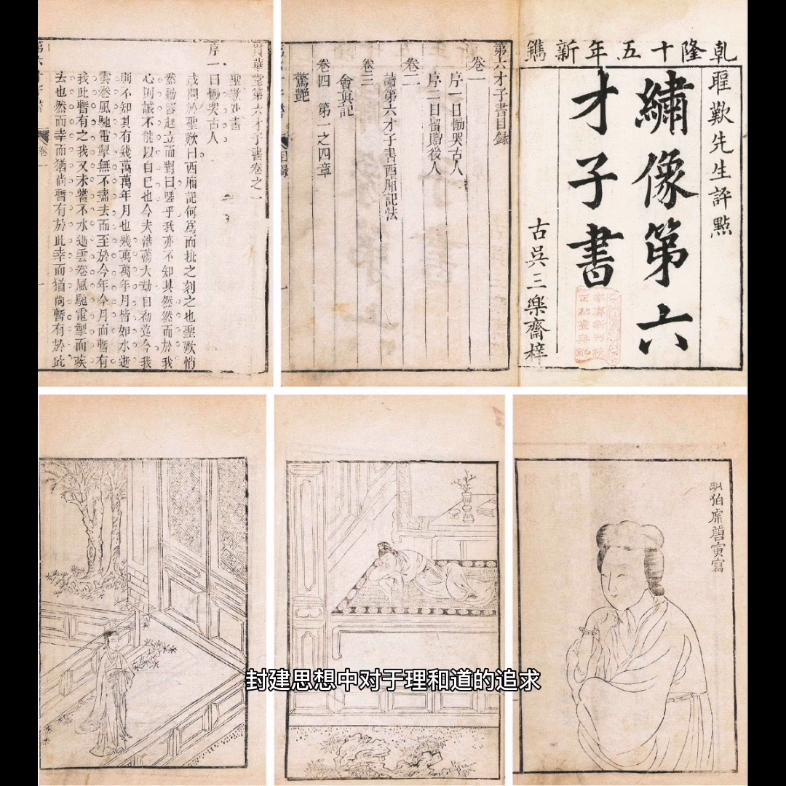 乾隆十五年新鐫
聖歎先生評點
繡像第六
才子書
古吳三樂齋梓
第六才子書目錄
卷一
序一曰慟哭古人
序二曰留贈後人
卷二
讀第六才子書西廂記法
卷三
會真記
卷四 第一之四章
驚艷
貫華堂第六才子書卷之一
聖歎外書
序一曰慟哭古人
或問於聖歎曰西廂記何爲而批之刻之也聖歎悄
然動容起立而對曰嗟乎我亦不知其然然而於我
心則誠不能以自已也今夫浩蕩大劫自初迄今我
則不知其有幾萬萬年月也幾萬萬年月皆如水逝
雲卷風馳電掣無不盡去而至於今年今月而暫有
我此暫有之我又未嘗不水逝雲卷風馳電掣而疾
去也然而幸而猶尚暫有於此幸而猶尚暫有於此
明伯虎唐寅寫
封建思想中对于理和道的追求